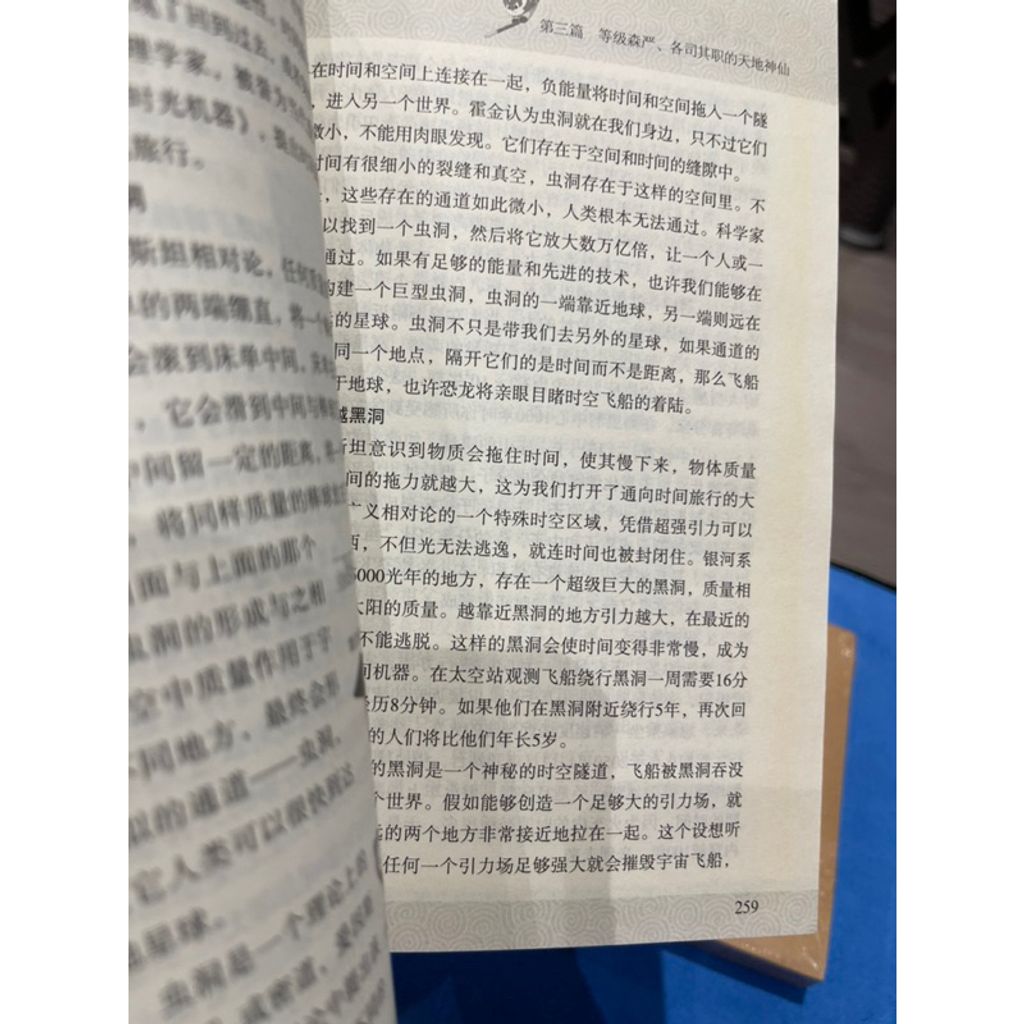 了回到过去
理学家，被誉为
时光机器》，提出
旅行。
斯坦相对论，任何
的两端绷直，将一个
会滚到床单中间，
，它会滑到中间与
中间留一定的距离，
将同样质量的
面与上面的那个
虫洞的形成与之相
空中质量作用于宇
不同地方，最终会形
似的通道——虫洞，
它人类可以很快到达
星球。
虫洞是一个理论上的
第三篇 等级森严、各司其职的天地神仙
在时间和空间上连接在一起，负能量将时间和空间拖入一个隧
，进入另一个世界。霍金认为虫洞就在我们身边，只不过它们
微小，不能用肉眼发现。它们存在于空间和时间的缝隙中。
时间有很细小的裂缝和真空，虫洞存在于这样的空间里。不
，这些存在的通道如此微小，人类根本无法通过。科学家
以找到一个虫洞，然后将它放大数万亿倍，让一个人或一
通过。如果有足够的能量和先进的技术，也许我们能够在
构建一个巨型虫洞，虫洞的一端靠近地球，另一端则远在
的星球。虫洞不只是带我们去另外的星球，如果通道的
同一个地点，隔开它们的是时间而不是距离，那么飞船
于地球，也许恐龙将亲眼目睹时空飞船的着陆。
越黑洞
斯坦意识到物质会拖住时间，使其慢下来，物体质量
间的拖力就越大，这为我们打开了通向时间旅行的大
广义相对论的一个特殊时空区域，凭借超强引力可以
西，不但光无法逃逸，就连时间也被封闭住。银河系
6000光年的地方，存在一个超级巨大的黑洞，质量相
太阳的质量。越靠近黑洞的地方引力越大，在最近的
不能逃脱。这样的黑洞会使时间变得非常慢，成为
间机器。在太空站观测飞船绕行黑洞一周需要16分
经历8分钟。如果他们在黑洞附近绕行5年，再次回
的人们将比他们年长5岁。
的黑洞是一个神秘的时空隧道，飞船被黑洞吞没
个世界。假如能够创造一个足够大的引力场，就
远的两个地方非常接近地拉在一起。这个设想听
任何一个引力场足够强大就会摧毁宇宙飞船，
259